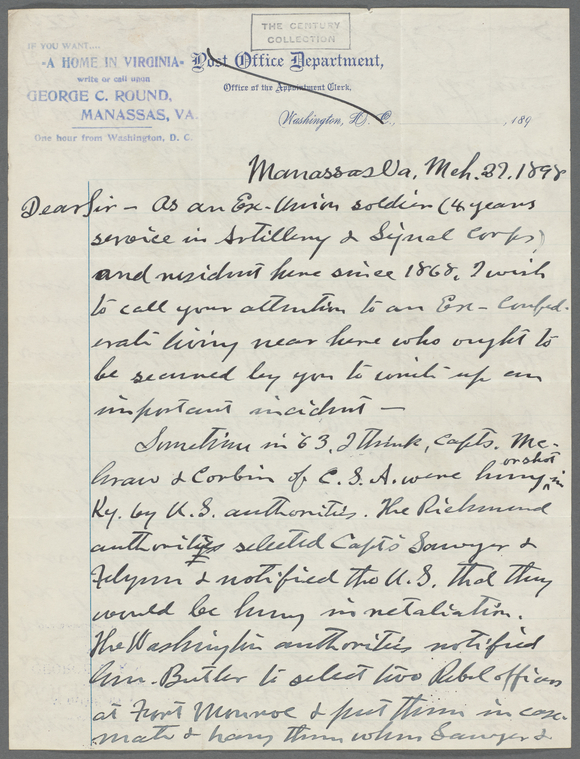 THE CENTURY
COLLECTION
IF YOU WANT....
-A HOME IN VIRGINIA-
write or call upon
GEORGE C. ROUND,
MANASSAS, VA.
One hour from Washington, D. C.
Post Office Department,
Office of the Appointment Clerk,
Washington, D. C., , 189
Manassas Va, Mch. 29. 1898
Dear Sir - As an Ex-Union soldier (4 years
service in Artillery & Signal Corps)
and resident here since 1868, I wish
to call your attention to an Ex-Confed-
erate living near here who ought to
be secured by you to write up an
important incident -
Sometime in '63, I think, Capts. Mc-
Graw & Corbin of C. S. A. were hung or shot in
Ky. by U. S. authorities. The Richmond
authorities selected Capts Sawyer &
Flynn & notified the U. S. that they
would be hung in retaliation.
The Washington authorities notified
Gen. Butler to select two Rebel officers
at Fort Monroe & put them in case-
mate & hang them when Sawyer &